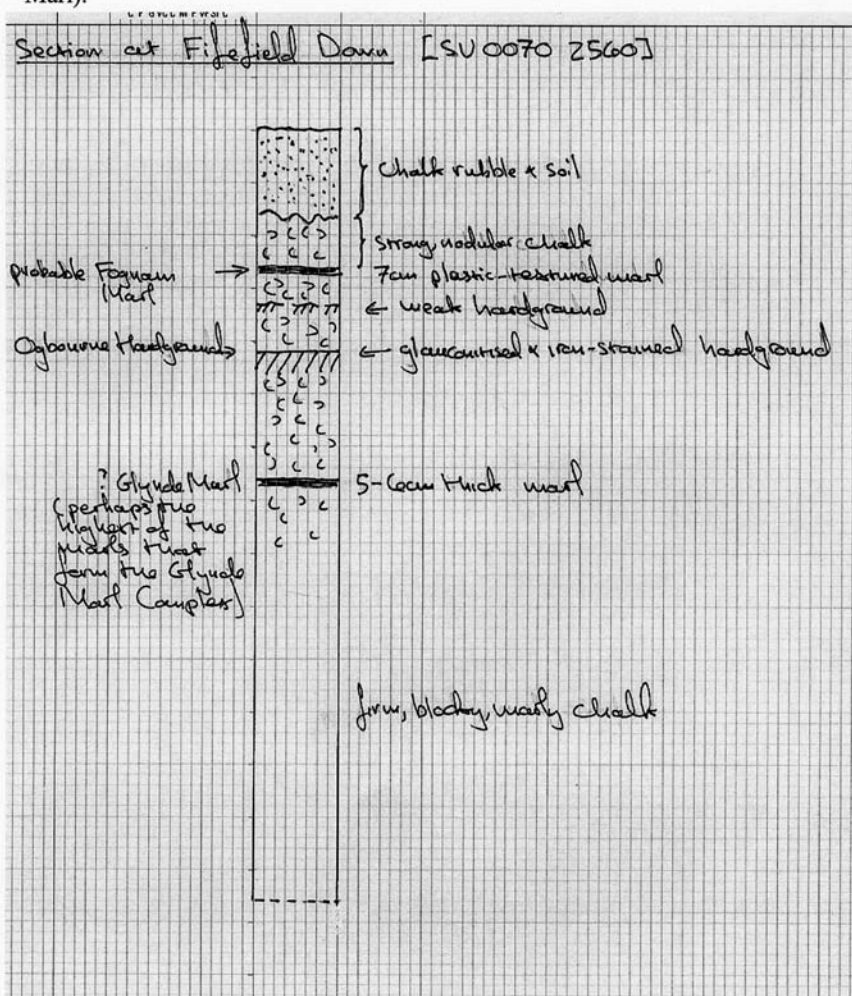 Marl).
Section at Fifefield Down [SU 0070 2560]
Chalk rubble & soil
strong, nodular chalk
probable Fognam
Marl
7cm plastic-textured marl
← weak hardground
Ogbourne Hardground
← glauconitised & iron-stained hardground
? Glynde Marl
(perhaps the
highest of the
marls that
form the Glynde
Marl Complex)
5-6cm thick marl
firm, blocky, marly chalk